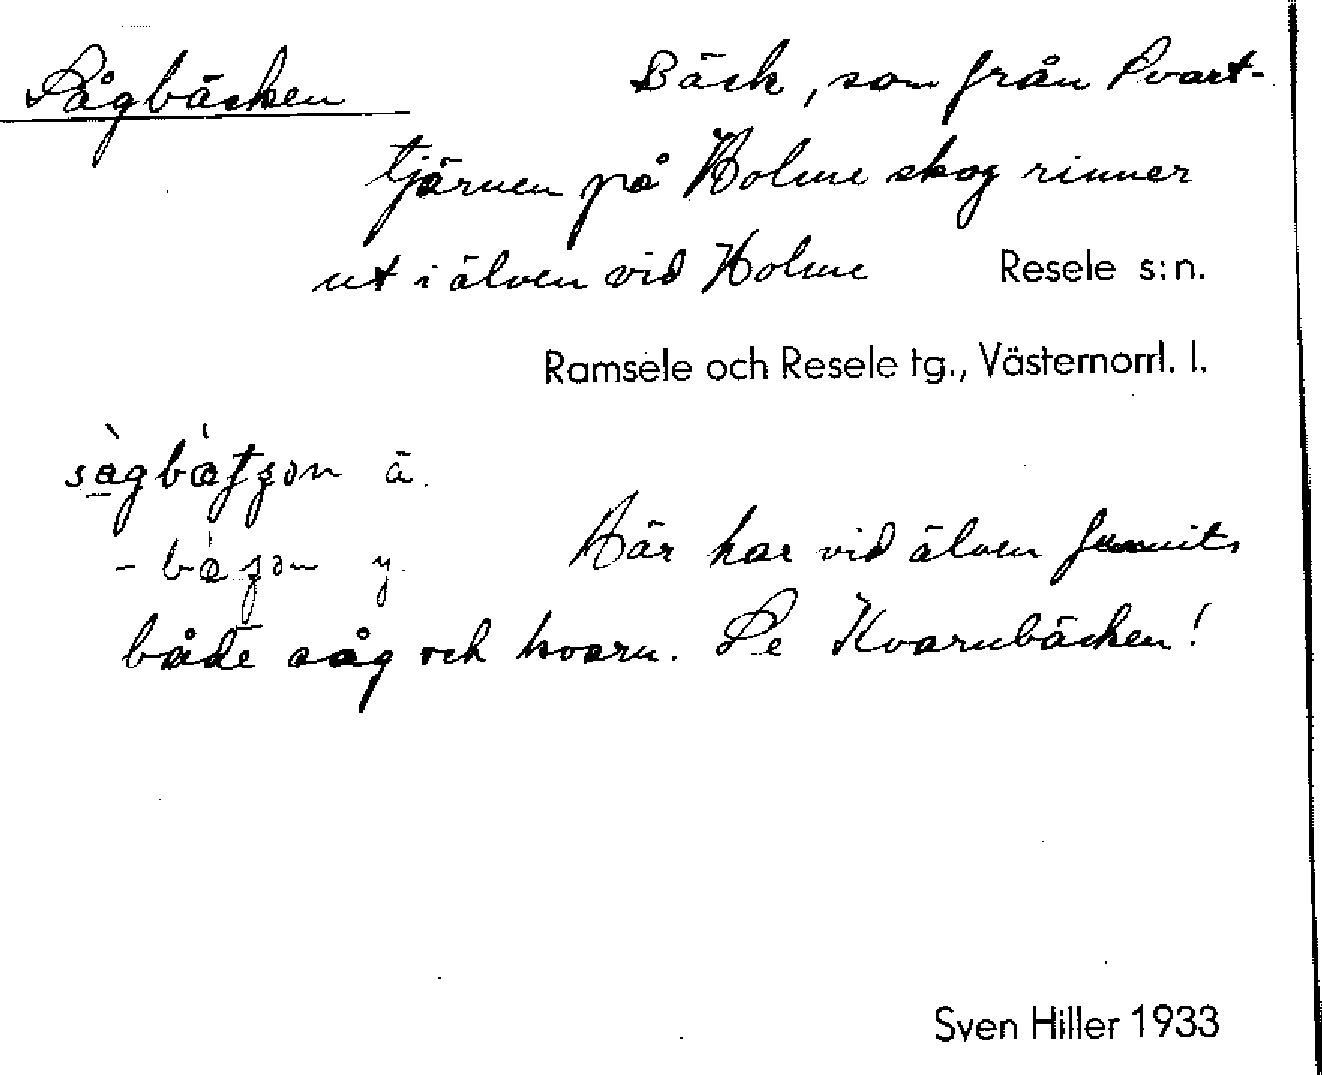 Sågbäcken Bäck, som från Svart-
tjärnen på Holme skog rinner
ut i älven vid Holme Resele s:n.
Ramsele och Resele tg., Västernorrl. l.
ä.
y. Här har vid älven funnits
både såg och kvarn. Se Kvarnbäcken!
Sven Hiller 1933